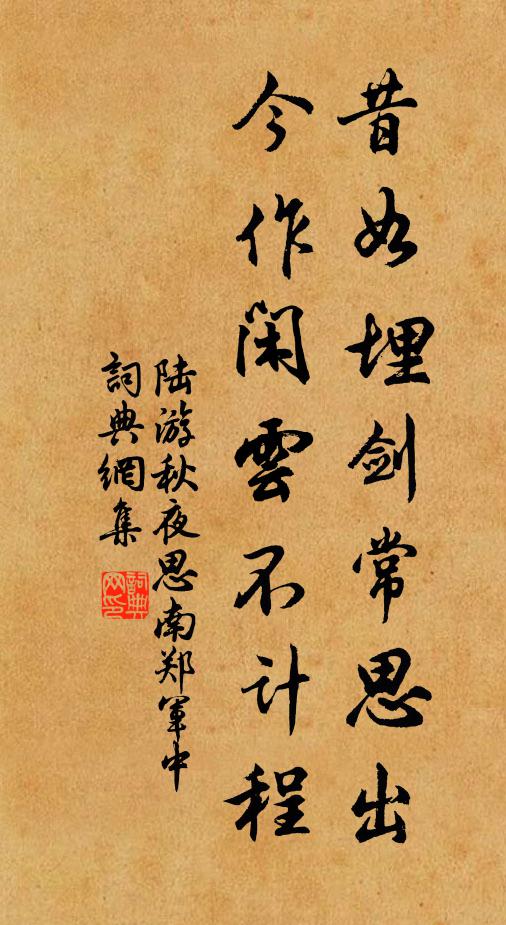 昔如埋剑常思出
今作闲雲不计程
陆游秋夜思南郑军中
詞典網集
詞典网印